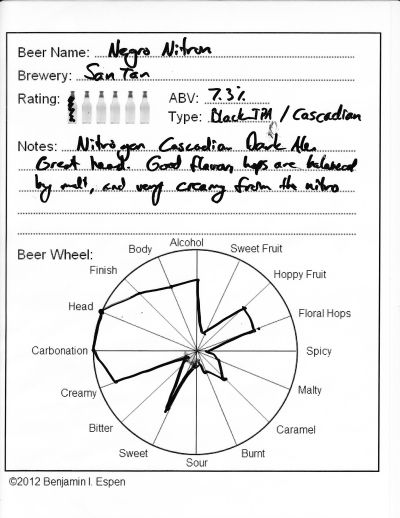 Beer Name: Negro Nitron
Brewery: San Tan
Rating:
ABV: 7.3%
Type: Black IPA / Cascadian
Notes: Nitrogen Cascadian Dark Ale.
Great head. Good flavor, hops are balanced
by malt, and very creamy from the nitro
Beer Wheel:
Alcohol
Sweet Fruit
Hoppy Fruit
Floral Hops
Spicy
Malty
Caramel
Burnt
Sour
Sweet
Bitter
Creamy
Carbonation
Head
Finish
Body
©2012 Benjamin I. Espen